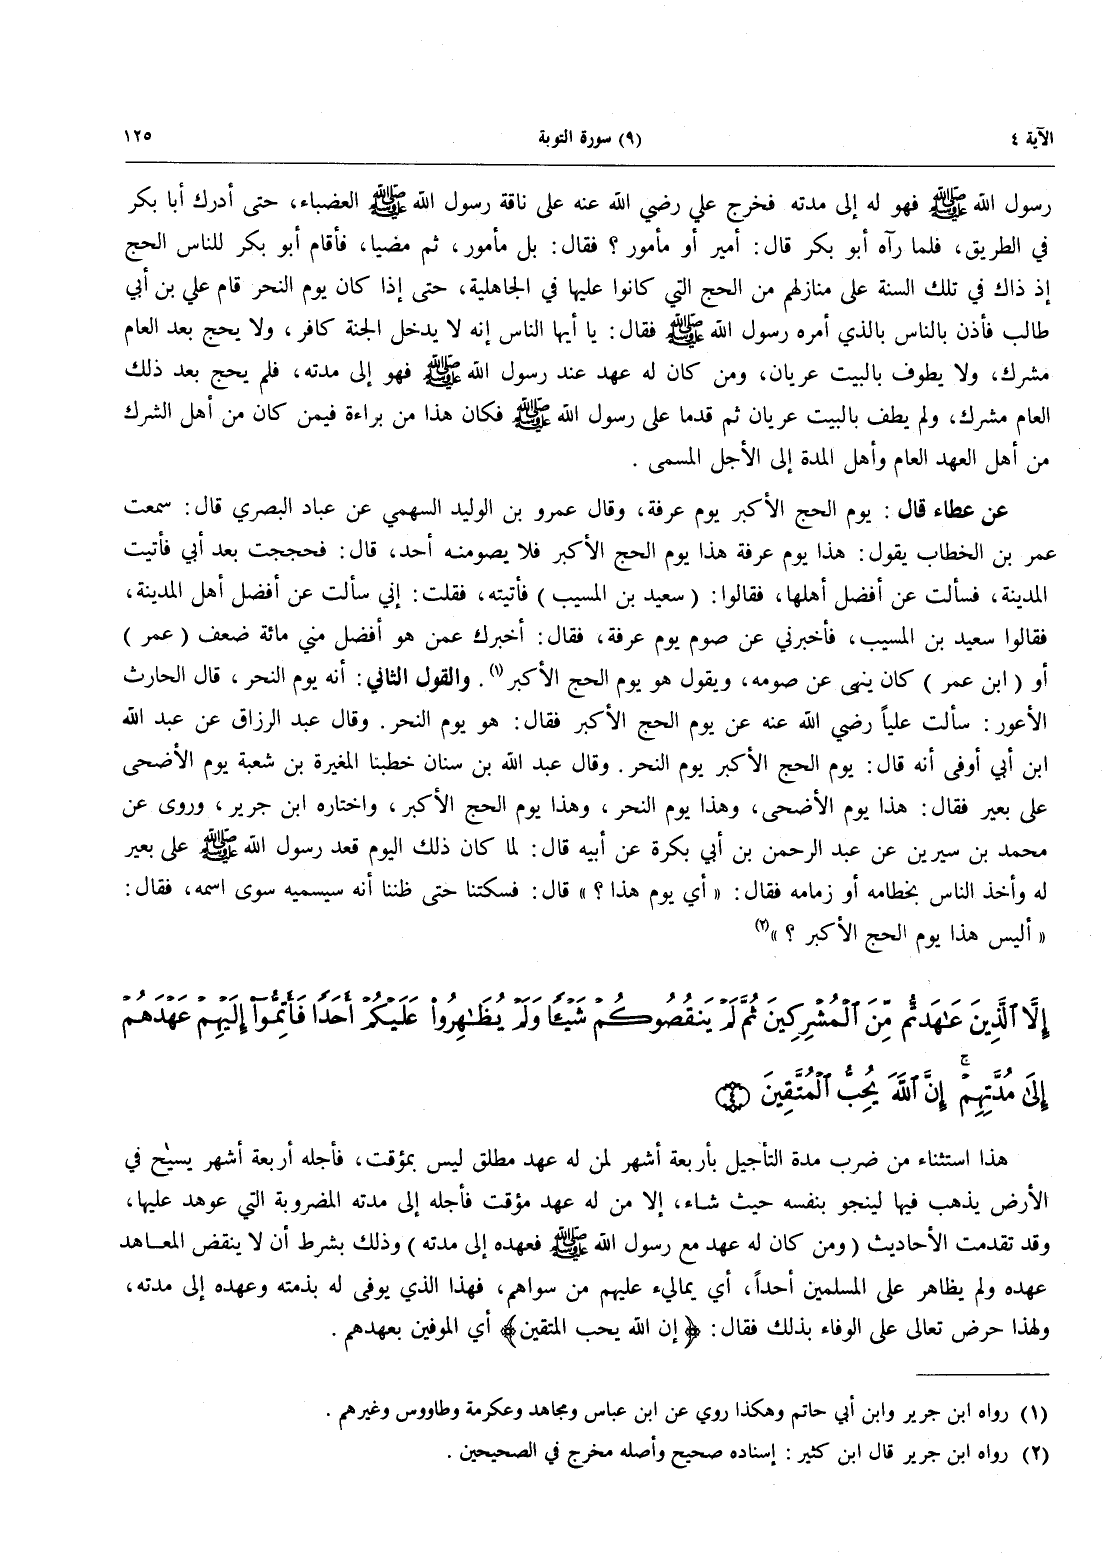 الآية ٤
(٩) سورة التوبة
١٢٥
رسول الله ﷺ فهو له إلى مدته فخرج علي رضي الله عنه على ناقة رسول الله ﷺ العضباء، حتى أدرك أبا بكر
في الطريق، فلما رآه أبو بكر قال: أمير أو مأمور؟ فقال: بل مأمور، ثم مضيا، فأقام أبو بكر للناس الحج
إذ ذاك في تلك السنة على منازلهم من الحج التي كانوا عليها في الجاهلية، حتى إذا كان يوم النحر قام علي بن أبي
طالب فأذن بالناس بالذي أمره رسول الله ﷺ فقال: يا أيها الناس إنه لا يدخل الجنة كافر، ولا يحج بعد العام
مشرك، ولا يطوف بالبيت عريان، ومن كان له عهد عند رسول الله ﷺ فهو إلى مدته، فلم يحج بعد ذلك
العام مشرك، ولم يطف بالبيت عريان ثم قدما على رسول الله ﷺ فكان هذا من براءة فيمن كان من أهل الشرك
من أهل العهد العام وأهل المدة إلى الأجل المسمى.
عن عطاء قال: يوم الحج الأكبر يوم عرفة، وقال عمرو بن الوليد السهمي عن عباد البصري قال: سمعت
عمر بن الخطاب يقول: هذا يوم عرفة هذا يوم الحج الأكبر فلا يصومنه أحد، قال: فحججت بعد أبي فأتيت
المدينة، فسألت عن أفضل أهلها، فقالوا: (سعيد بن المسيب) فأتيته، فقلت: إني سألت عن أفضل أهل المدينة،
فقالوا سعيد بن المسيب، فأخبرني عن صوم يوم عرفة، فقال: أخبرك عمن هو أفضل مني مائة ضعف (عمر)
أو (ابن عمر) كان ينهى عن صومه، ويقول هو يوم الحج الأكبر(١). والقول الثاني: أنه يوم النحر، قال الحارث
الأعور: سألت علياً رضي الله عنه عن يوم الحج الأكبر فقال: هو يوم النحر. وقال عبد الرزاق عن عبد الله
ابن أبي أوفى أنه قال: يوم الحج الأكبر يوم النحر. وقال عبد الله بن سنان خطبنا المغيرة بن شعبة يوم الأضحى
على بعير فقال: هذا يوم الأضحى، وهذا يوم النحر، وهذا يوم الحج الأكبر، واختاره ابن جرير، وروى عن
محمد بن سيرين عن عبد الرحمن بن أبي بكرة عن أبيه قال: لما كان ذلك اليوم قعد رسول الله ﷺ على بعير
له وأخذ الناس بخطامه أو زمامه فقال: «أي يوم هذا؟» قال: فسكتنا حتى ظننا أنه سيسميه سوى اسمه، فقال:
«أليس هذا يوم الحج الأكبر؟»(٢)
إِلَّا ٱلَّذِينَ عَٰهَدتُّم مِّنَ ٱلْمُشْرِكِينَ ثُمَّ لَمْ يَنقُصُوكُمْ شَيْـًٔا وَلَمْ يُظَٰهِرُوا۟ عَلَيْكُمْ أَحَدًا فَأَتِمُّوٓا۟ إِلَيْهِمْ عَهْدَهُمْ
إِلَىٰ مُدَّتِهِمْ ۚ إِنَّ ٱللَّهَ يُحِبُّ ٱلْمُتَّقِينَ ٤
هذا استثناء من ضرب مدة التأجيل بأربعة أشهر لمن له عهد مطلق ليس بمؤقت، فأجله أربعة أشهر يسيح في
الأرض يذهب فيها لينجو بنفسه حيث شاء، إلا من له عهد مؤقت فأجله إلى مدته المضروبة التي عوهد عليها،
وقد تقدمت الأحاديث (ومن كان له عهد مع رسول الله ﷺ فعهده إلى مدته) وذلك بشرط أن لا ينقض المعاهد
عهده ولم يظاهر على المسلمين أحداً، أي يماليء عليهم من سواهم، فهذا الذي يوفى له بذمته وعهده إلى مدته،
ولهذا حرض تعالى على الوفاء بذلك فقال: ﴿إن الله يحب المتقين﴾ أي الموفين بعهدهم.
(١) رواه ابن جرير وابن أبي حاتم وهكذا روي عن ابن عباس ومجاهد وعكرمة وطاووس وغيرهم.
(٢) رواه ابن جرير قال ابن كثير: إسناده صحيح وأصله مخرج في الصحيحين.